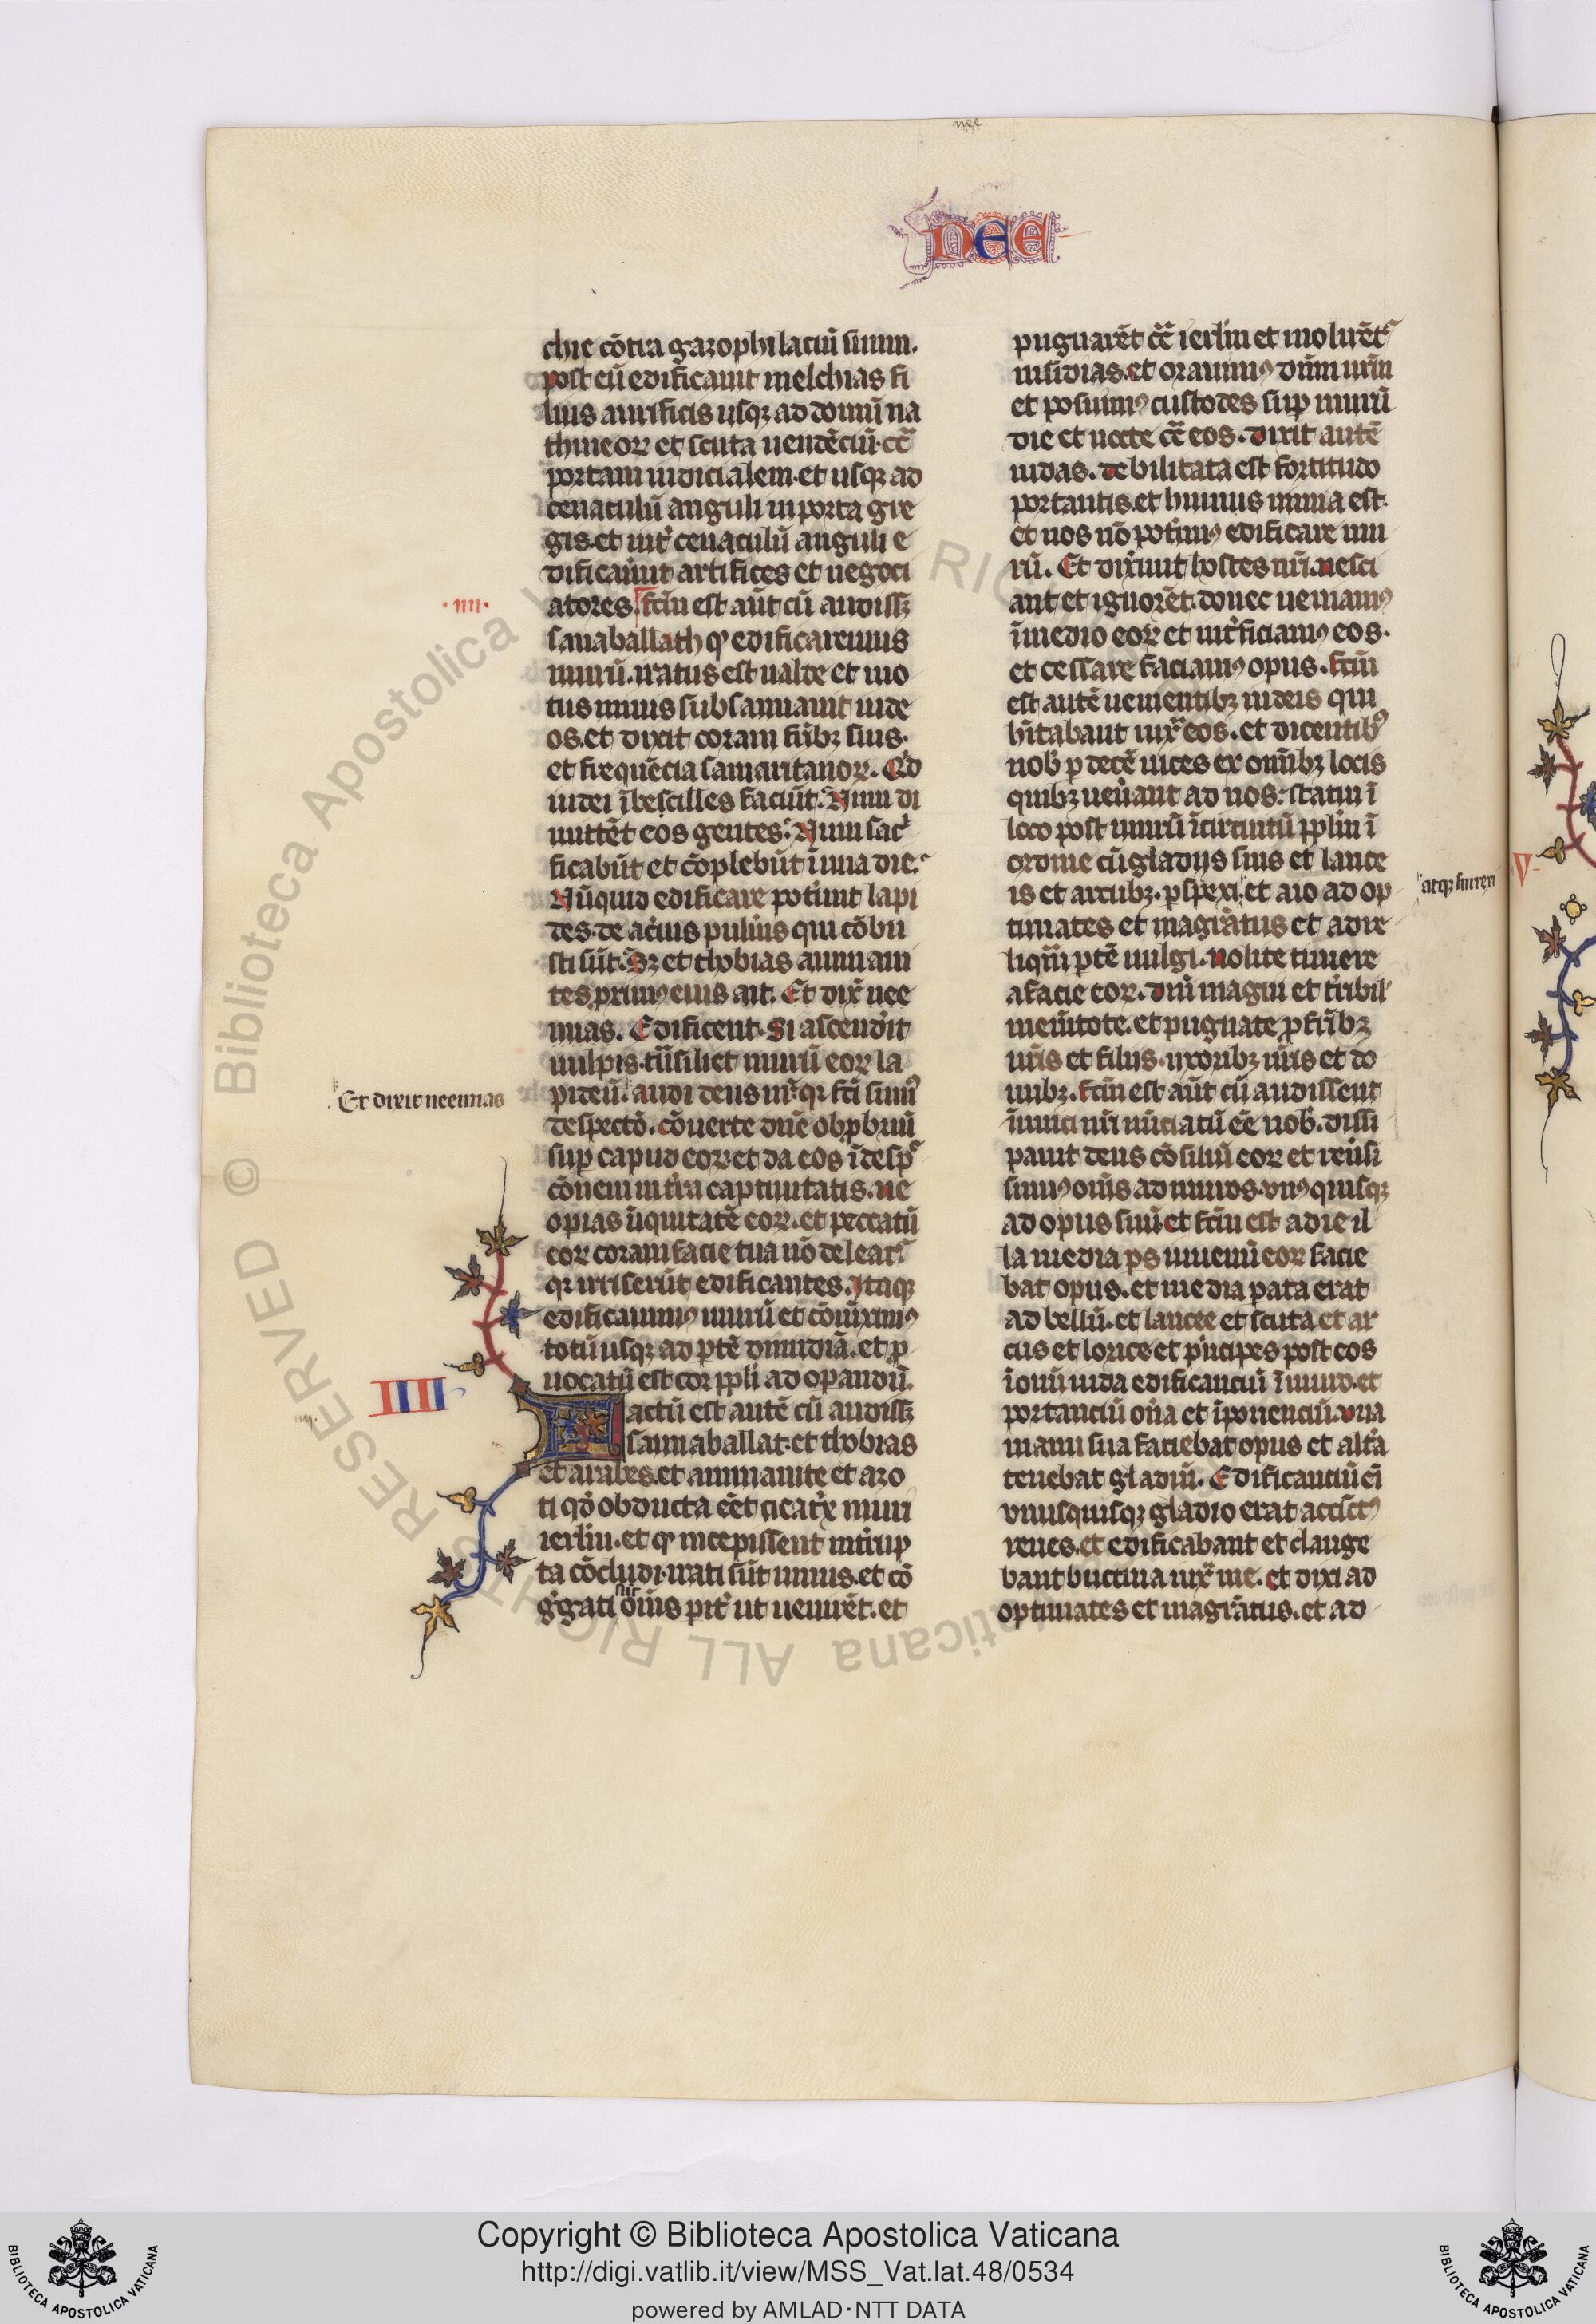 nee
NEE
chie cōtra gazophilaciū suum.
post eū edificauit melchias fi
lius aurificis usqꝫ ad domū na
thineoꝝ et scuta uendēciū. cͨ
portam iudicialem. et usqꝫ ad
cenaculū anguli in porta gre
gis. et int̾ cenaculū anguli e
dificauūt artifices et negoci
.IIII.
atores. fcm̄ est aūt cū audissꝫ
sanaballath qͦ edificaremus
murū. iratus est ualde et mo
tus nimis subsannauit iude
os. et dixit coram frībꝫ suis.
et frequēcia samaritanoꝝ. Qͥd
iudei ībescilles faciūt. Num di
mittēt eos gentes. Num sac̾
ficabūt et cōplebūt ī una die.
Nūquid edificare pot̾unt lapi
des. de ac̾uis pulūis qui cōbu
sti sūt. Sꝫ et thobias ammani
tes primꝰ eius ait. Et dix̾ nee
mias. Edificent. Si ascend̾it
uulpis. t̄nsiliet murū eoꝝ la
Et dixit neemias
pideū. audi deus nr̄. qꝛ fc̄i sumꝰ
despectō. cōuerte dn̄e obꝓbriū
suꝑ capud eoꝝ. et da eos ī despͨ
cōnem in t̾ra captiuitatis. ne
opias īiquitatē eoꝝ. et peccatū
eoꝝ coram facie tua nō deleat᷑
qꝛ irriserūt edificantes. Itaqꝫ
edificauimꝰ murū et cōiūximꝰ
totū usqꝫ ad ꝑtē dimidiā. et ꝓ
uocatū est cor pp̄li ad oꝑandū.
IIII
iiii.
Factū est autē cū audissꝫ
sannaballat. et thobias
et arabes. et ammanite et azo
ti qd̄ obducta eēt cicat̾x muri
ierlm̄. et qͦ incepissent int̾rup
ta cōcludi. irati sūt nimis. et cō
g̾gati sūt om̄s pit̾ ut uenirēt. et
pugnarēt cͨ ierlm̄ et molirēt᷑
insidias. et orauimꝰ dn̄m nrm̄
et posuimꝰ custodes suꝑ murū
die et nocte cͨ eos. dixit autē
iudas. debilitata est fortitudo
portantis. et humus nimia est.
et nos nō pot̾imꝰ edificare mu
rū. Et dix̾unt hostes nr̄i. nesci
ant et ignorēt. donec ueniamꝰ
ī medio eoꝝ et int̾ficiamꝰ eos.
et cessare faciamꝰ opus. fcm̄
est autē uenientibꝫ iudeis qui
hītabant iux̾ eos. et dicentibꝰ
nob̾ ꝑ decē uices ex om̄ibꝫ locis
quibꝫ ueūant ad nos. statui ī
loco post murū ī circuitū pplm̄ ī
ordine cū gladijs suis et lance
atqꝫ surrexi
is et arcubꝫ. ꝑspexi. et aio ad op
timates et magr̄atus et ad re
liqm̄ ꝑtē uulgi. nolite timere
a facie eoꝝ. dn̄i magni et t̾ribil̾
mem̄tote. et pugnate ꝓ frībꝫ
ur̄is et filijs. uxoribꝫ ur̄is et do
mibꝫ. fcm̄ est aūt cū audissent
inimici nr̄i nūciatū eē nob̾. dissi
pauit deus cōsiliū eoꝝ et reūsi
sumꝰ om̄s ad muros. unꝰquisqꝫ
ad opus suū. et fcm̄ est a die il
la media ps iuuenū eoꝝ facie
bat opus. et media pata erat
ad bellū. et lancee et scuta et ar
cus et lorice et pͥncipes post eos
ī om̄i iuda edificanciū ī muro. et
portanciū on̾a et īponenciū. una
manu sua faciebat opus et alt̾a
tenebat gladiū. Edificanciū ēi
unusquisqꝫ gladio erat accinctꝰ
renes. et edificabant et clange
bant buccina iux̾ me. et dixi ad
optimates et magr̄atus. et ad
V
Copyright © Biblioteca Apostolica Vaticana
http://digi.vatlib.it/view/MSS_Vat.lat.48/0534
powered by AMLAD·NTT DATA
BIBLIOTECA APOSTOLICA VATICANA
BIBLIOTECA APOSTOLICA VATICANA
© Biblioteca Apostolica Vaticana ALL RIGHTS RESERVED